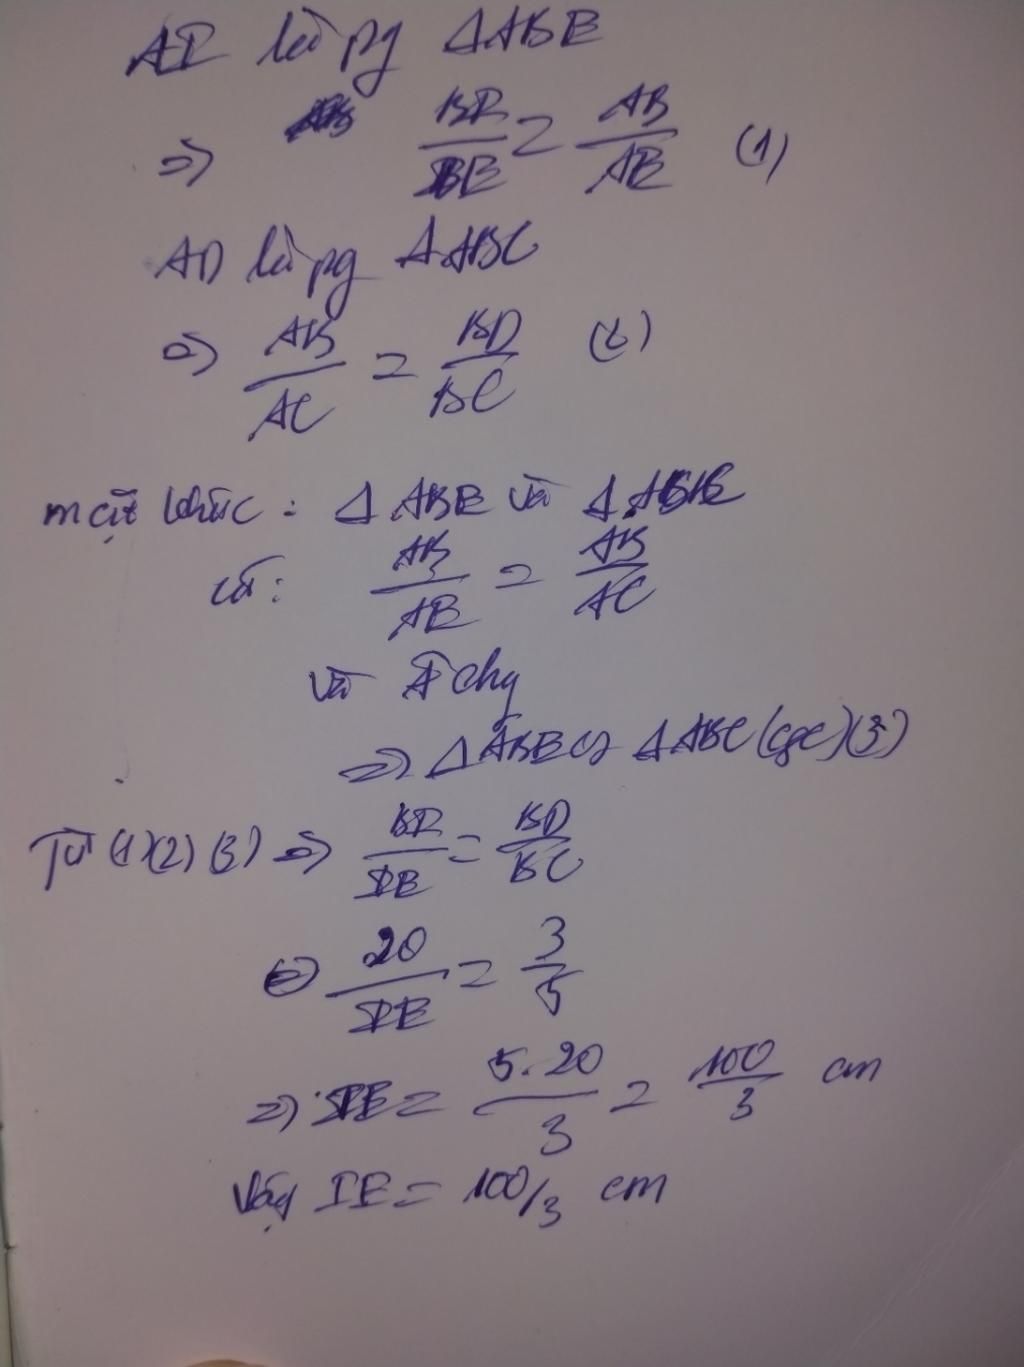 AI là pg ΔABE
=> BI/BE = AB/AE (1)
AD là pg ΔABC
=> AB/AC = BD/BC (2)
mặt khác : ΔABE và ΔABC
có : AB/AE = AB/AC
và Â chg
=> ΔABE ∽ ΔABC (cgc) (3)
Từ (1)(2)(3) => BI/IE = BD/BC
<=> 20/IE = 3/5
=> IE = 5.20/3 = 100/3 cm
Vậy IE = 100/3 cm